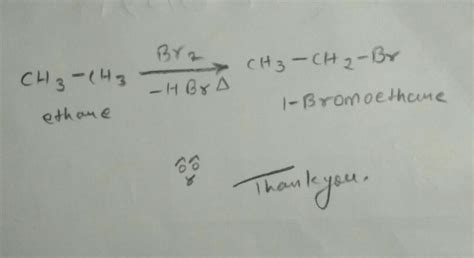 CH3-CH3 Br2 -HBr Δ CH3-CH2-Br
ethane 1-Bromoethane
Thank you.